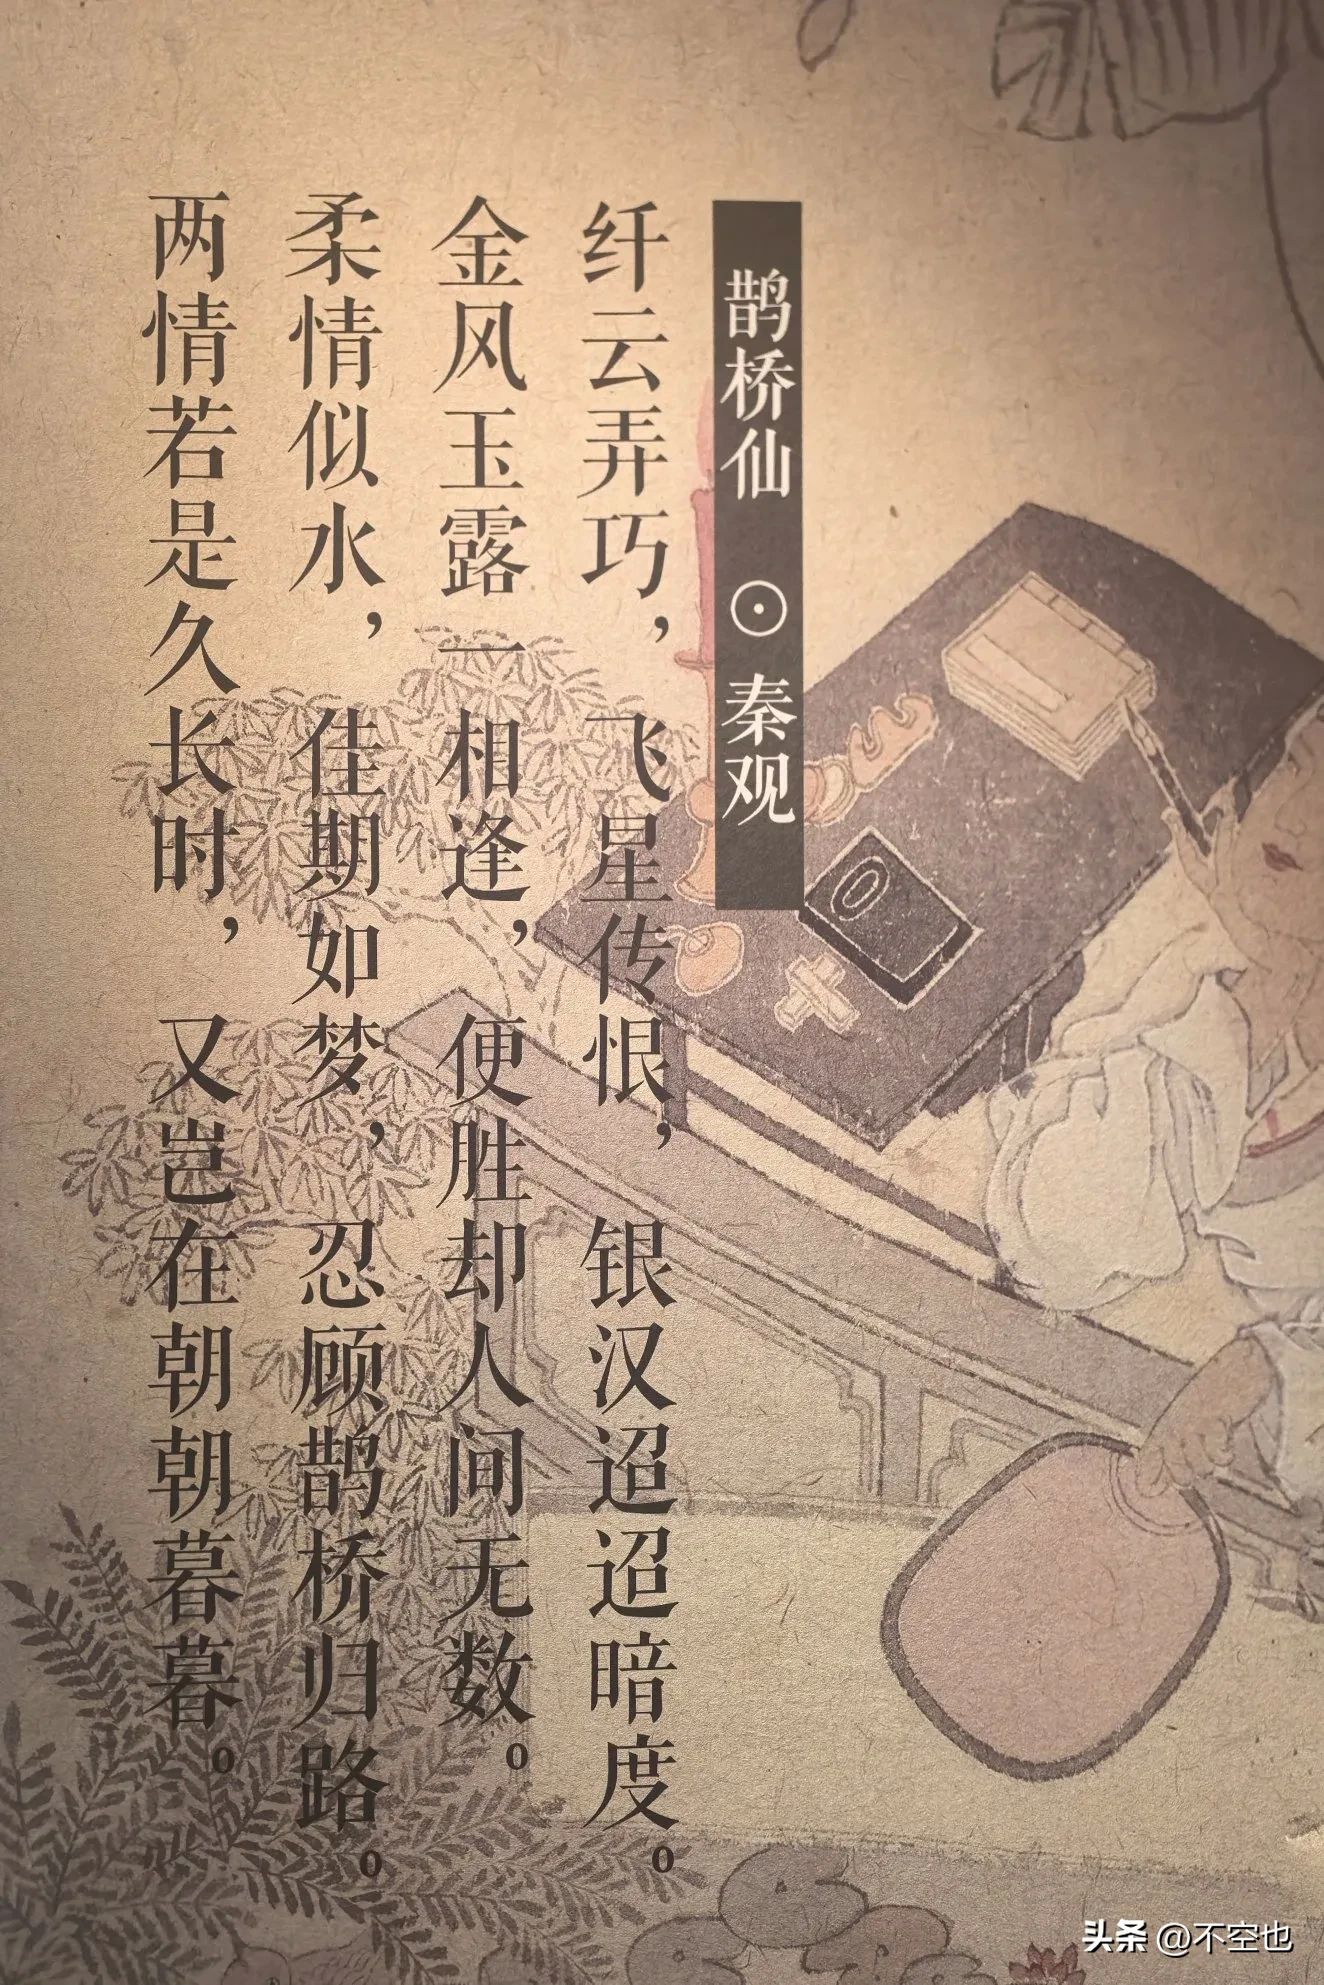 鹊桥仙 ⊙ 秦观
纤云弄巧，飞星传恨，银汉迢迢暗度。
金风玉露一相逢，便胜却人间无数。
柔情似水，佳期如梦，忍顾鹊桥归路。
两情若是久长时，又岂在朝朝暮暮。
头条 @不空也